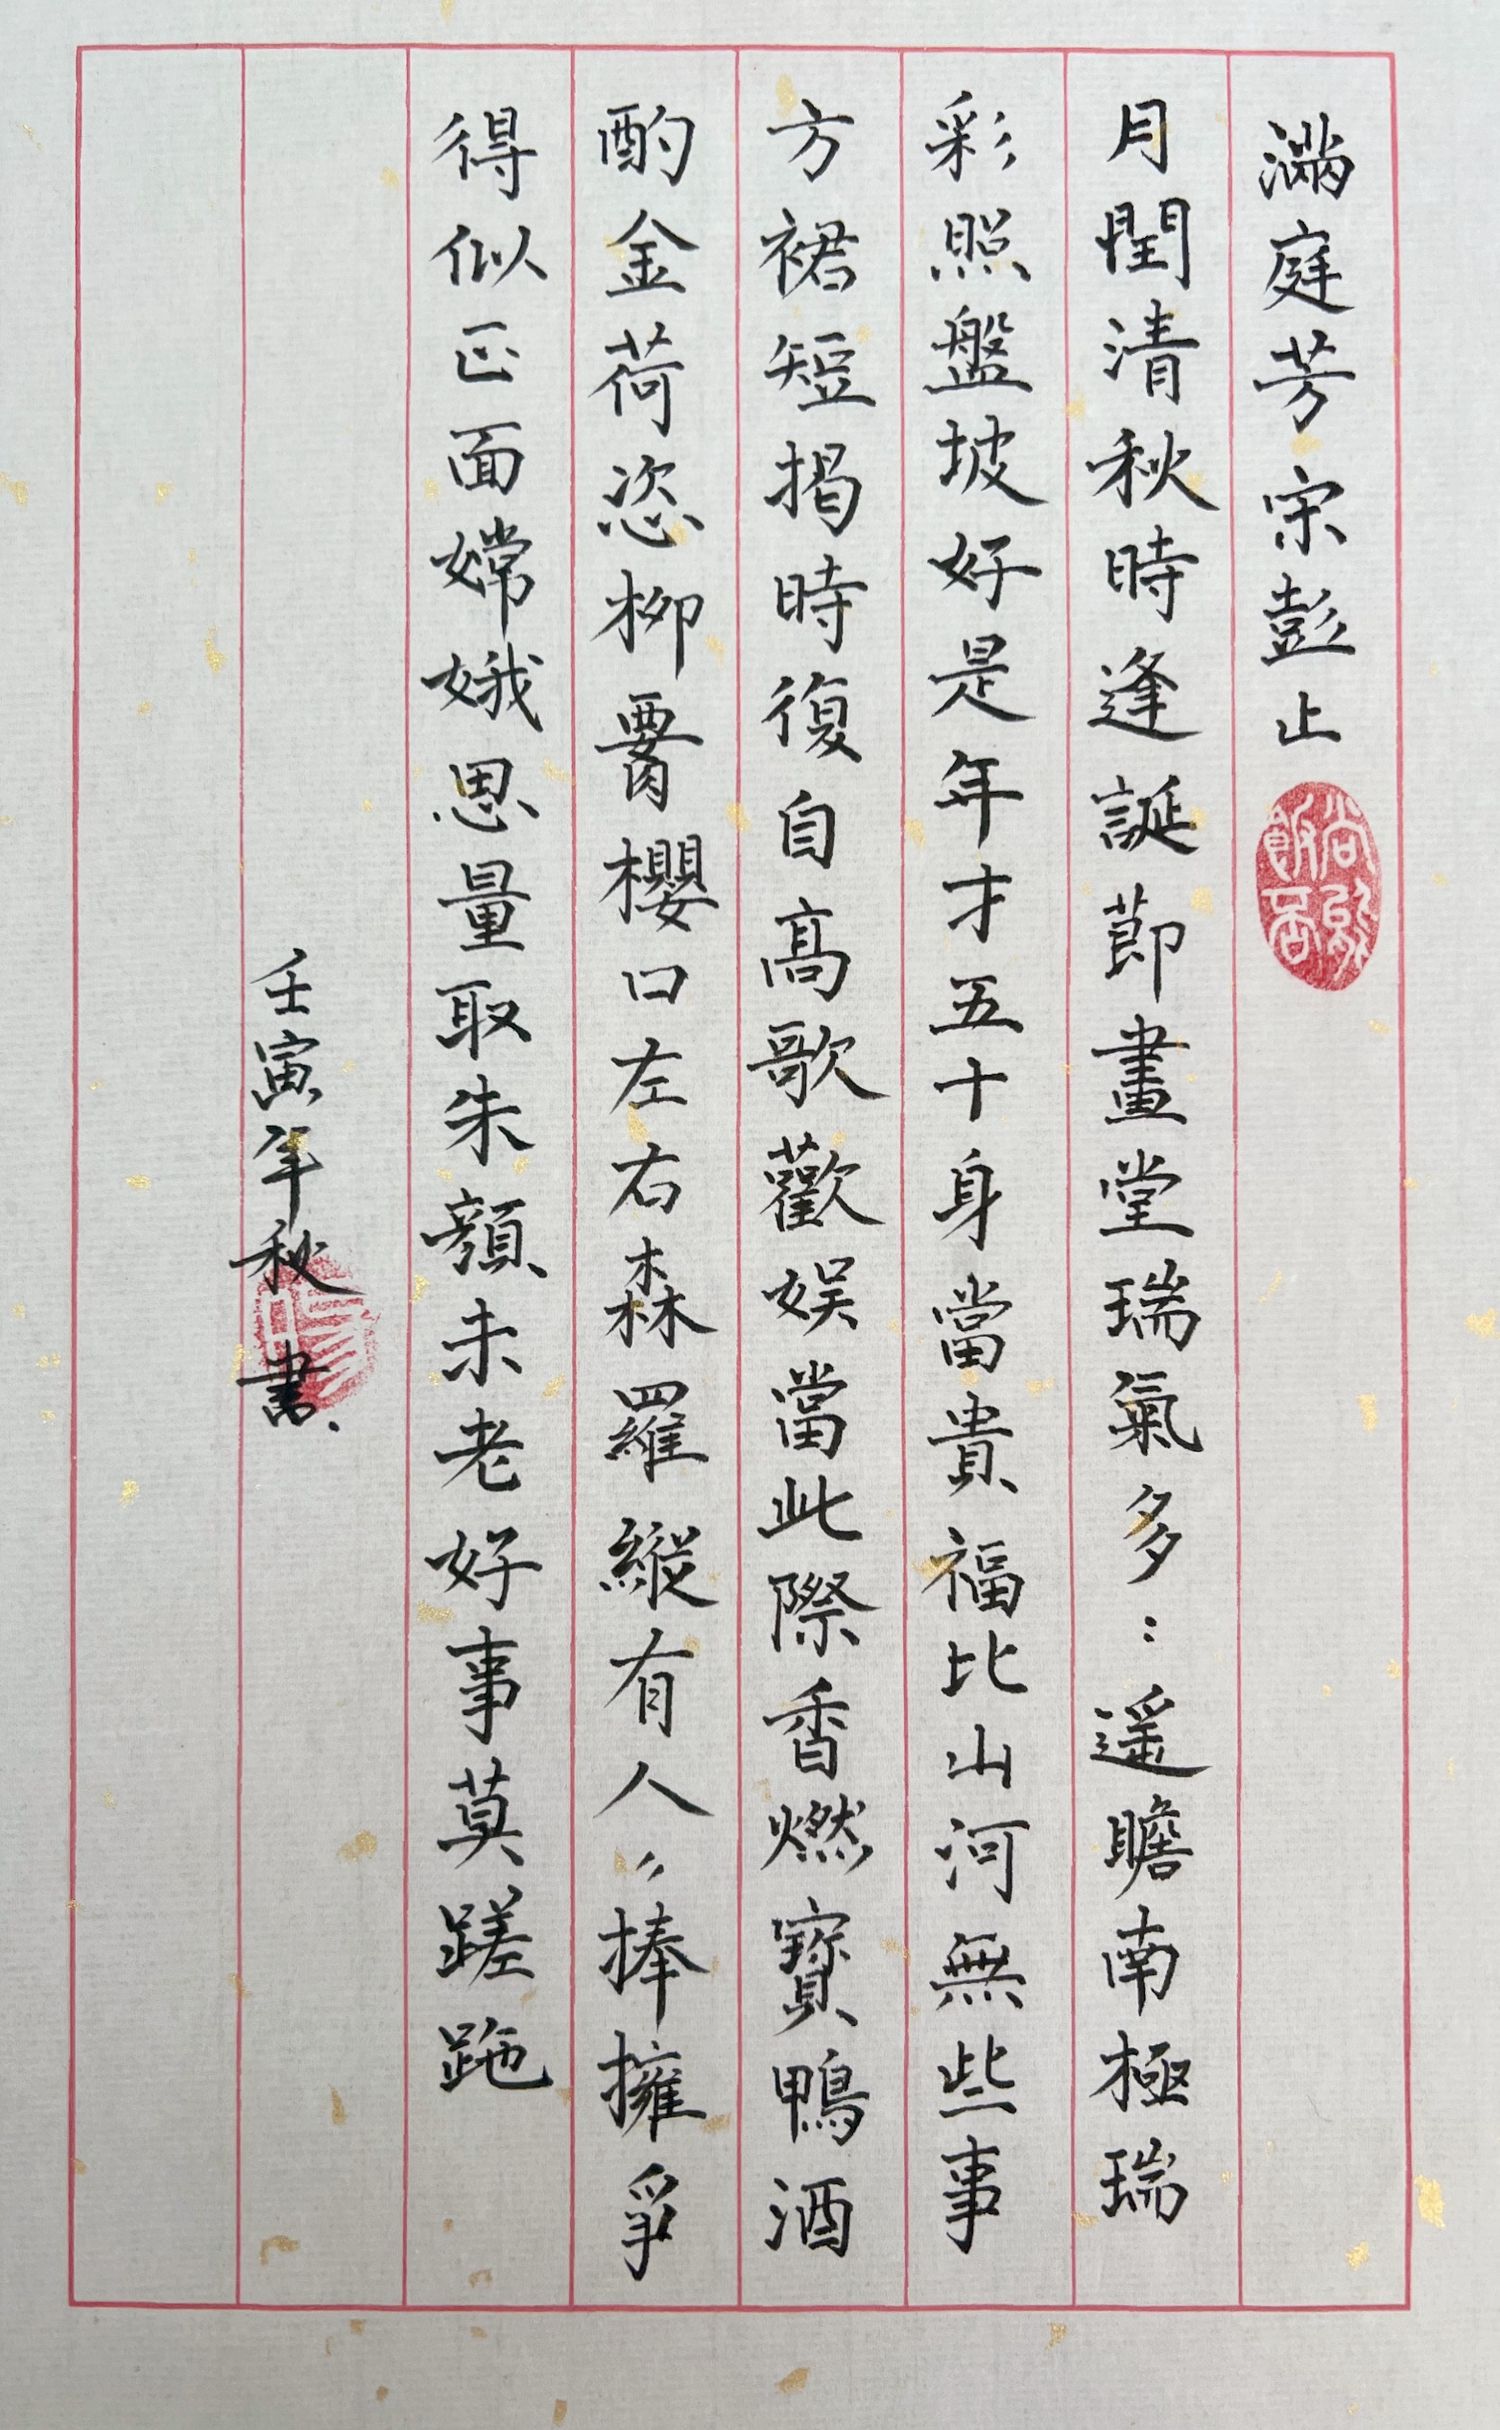 滿庭芳宋彭止
月閏清秋時逢誕節畫堂瑞氣多:遥瞻南極瑞
彩照盤坡好是年才五十身當貴福比山河無些事
方裙短揭時復自高歌歡娱當此際香燃寶鴨酒
酌金荷恣柳𦝫櫻口左右森羅縱有人〃捧擁爭
得似正面嫦娥思量取朱顔未老好事莫蹉跎
壬寅年秋書